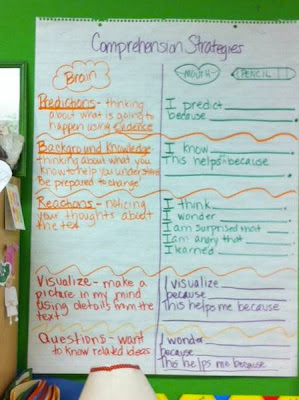 Comprehension Strategies
Brain
MOUTH
PENCIL
Predictions - thinking
about what is going to
happen using Evidence
I predict
because
Background Knowledge
thinking about what you
know to help you understand
Be prepared to change!
I know
This helps because
Reactions - noticing
your thoughts about
the text
I think
I wonder
I am surprised that
I am angry that
I learned
Visualize - make a
picture in my mind
using details from the
text
I visualize
because
This helps me because
Questions - want
to know related ideas
I wonder
because
This helps me because